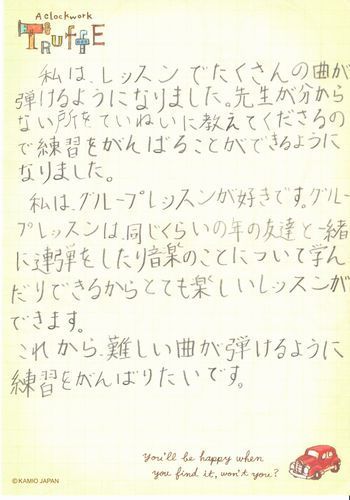 A clockwork
TRUFFE
私は、レッスンでたくさんの曲が
弾けるようになりました。先生が分から
ない所をていねいに教えてくださるの
で練習をがんばることができるように
なりました。
私は、グループレッスンが好きです。グルー
プレッスンは、同じくらいの年の友達と一緒
に連弾をしたり音楽のことについて学ん
だりできるからとても楽しいレッスンが
できます。
これから、難しい曲が弾けるように
練習をがんばりたいです。
You'll be happy when
you find it, won't you?
©KAMIO JAPAN